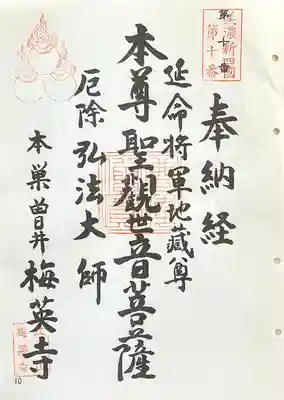 美濃新四国
第十番
奉納経
延命将軍地蔵尊
本尊聖観世音菩薩
厄除弘法大師
本巣曽井
梅英寺
10